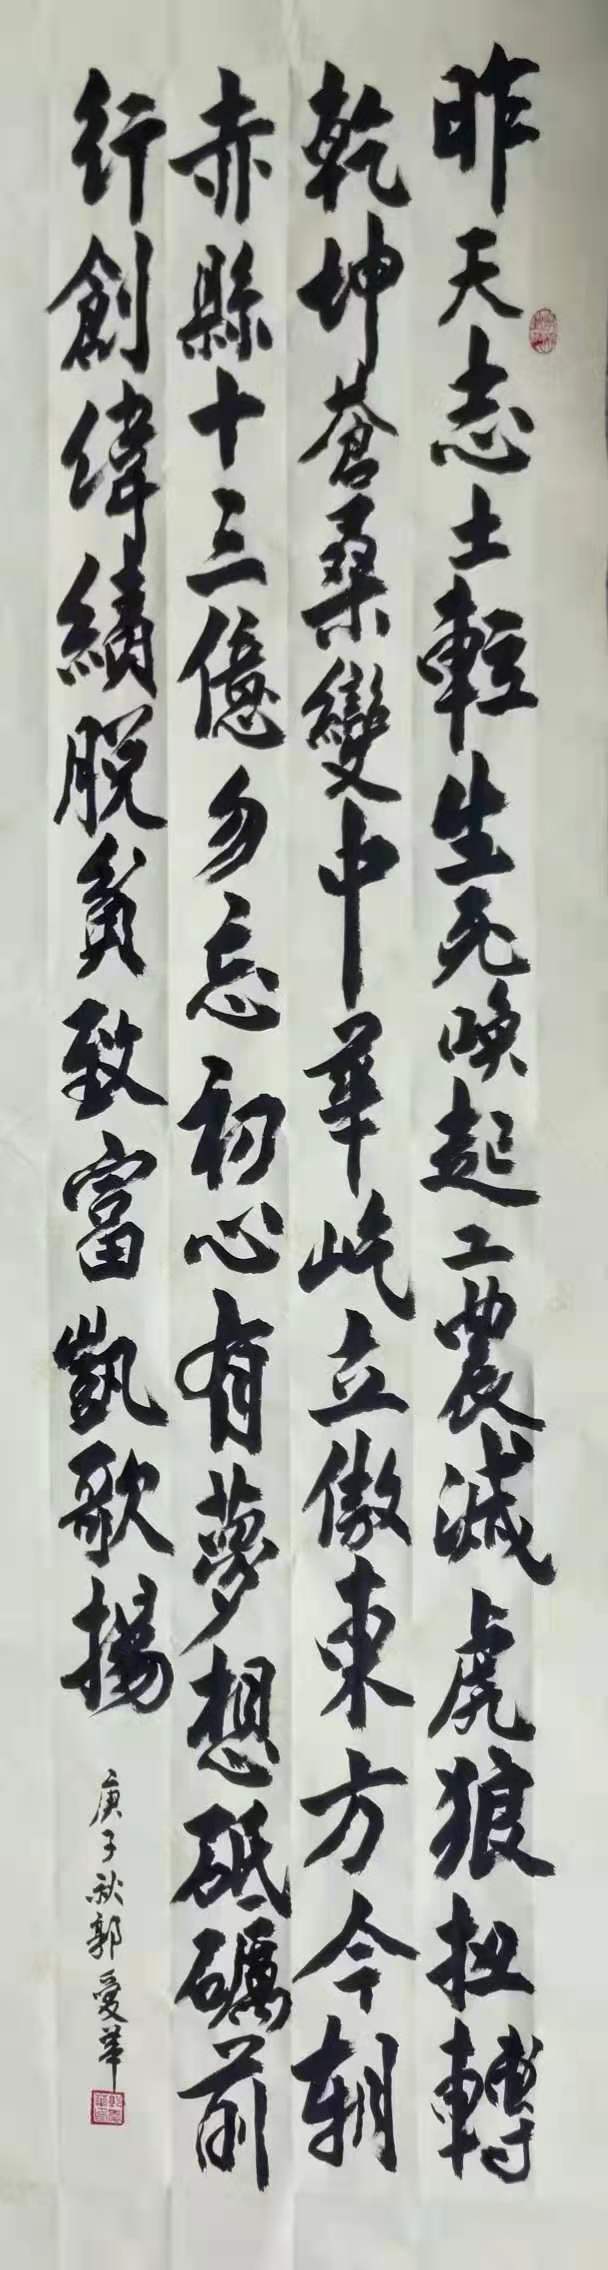 昨天志士輕生死喚起工農減虎狼扭轉
乾坤蒼桑變中華屹立傲東方今朝
赤縣十三億勿忘初心有夢想砥礪前
行創偉績脫貧致富凱歌揚
庚子秋郭愛華